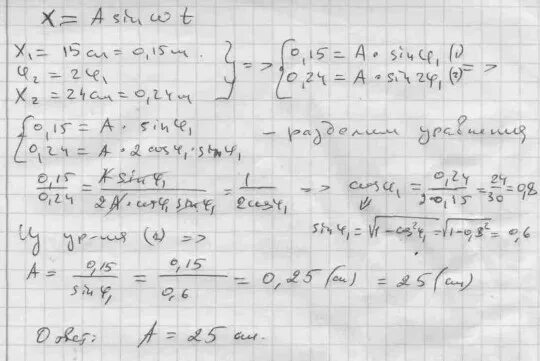 X = A sin ωt
X₁ = 15см = 0,15м.
φ₂ = 2φ₁
X₂ = 24см = 0,24м
=> { 0,15 = A · sinφ₁ (1)
0,24 = A · sin2φ₁ (2) =>
{ 0,15 = A · sinφ₁
0,24 = A · 2cosφ₁ · sinφ₁
- разделим уравнения
0,15/0,24 = A sinφ₁/2A · cosφ₁ sinφ₁ = 1/2cosφ₁ => cosφ₁ = 0,24/2·0,15 = 24/30 = 0,8
sinφ₁ = √1-cos²φ₁ = √1-0,8² = 0,6
Из ур-ния (1) =>
A = 0,15/sinφ₁ = 0,15/0,6 = 0,25 (м) = 25 (см)
Ответ: A = 25 см.